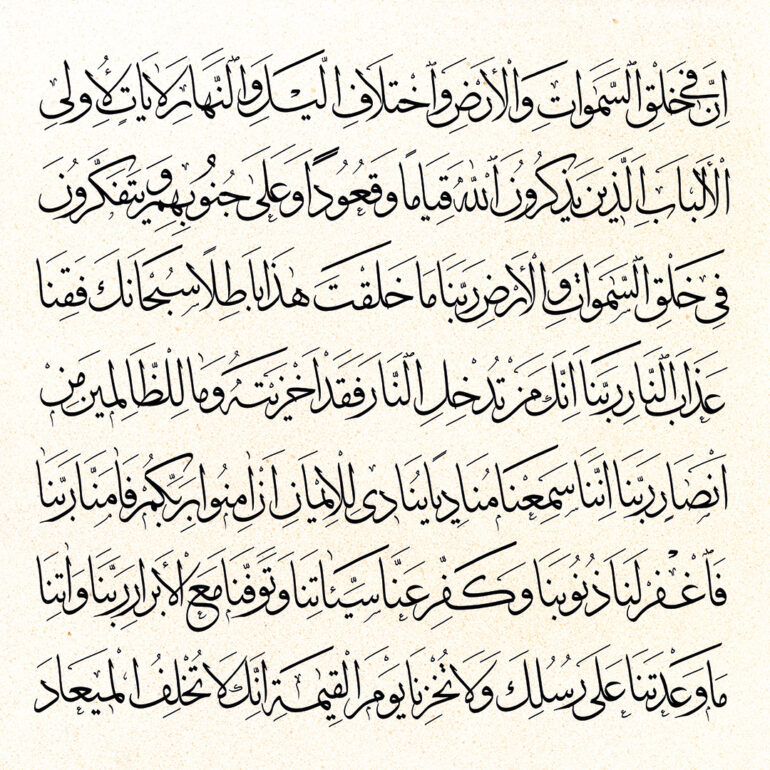 اِنَّ فٖي خَلْقِ السَّمٰوَاتِ وَالْأَرْضِ وَاخْتِلَافِ الَّيْلِ وَالنَّهَارِ لَاٰيَاتٍ لِأُولِي
الْأَلْبَابِ اَلَّذٖينَ يَذْكُرُونَ اللّٰهَ قِيَامًا وَقُعُودًا وَعَلٰى جُنُوبِهِمْ وَيَتَفَكَّرُونَ
فٖي خَلْقِ السَّمٰوَاتِ وَالْأَرْضِ رَبَّنَا مَا خَلَقْتَ هٰذَا بَاطِلًا سُبْحَانَكَ فَقِنَا
عَذَابَ النَّارِ رَبَّنَا اِنَّكَ مَنْ تُدْخِلِ النَّارَ فَقَدْ اَخْزَيْتَهُ وَمَا لِلظَّالِمٖينَ مِنْ
اَنْصَارٍ رَبَّنَا اِنَّنَا سَمِعْنَا مُنَادِيًا يُنَادٖي لِلْاِيمَانِ اَنْ اٰمِنُوا بِرَبِّكُمْ فَاٰمَنَّا رَبَّنَا
فَاغْفِرْ لَنَا ذُنُوبَنَا وَكَفِّرْ عَنَّا سَيِّـَٔاتِنَا وَتَوَفَّنَا مَعَ الْأَبْرَارِ رَبَّنَا وَاٰتِنَا
مَا وَعَدْتَنَا عَلٰى رُسُلِكَ وَلَا تُخْزِنَا يَوْمَ الْقِيٰمَةِ اِنَّكَ لَا تُخْلِفُ الْمٖيعَادَ